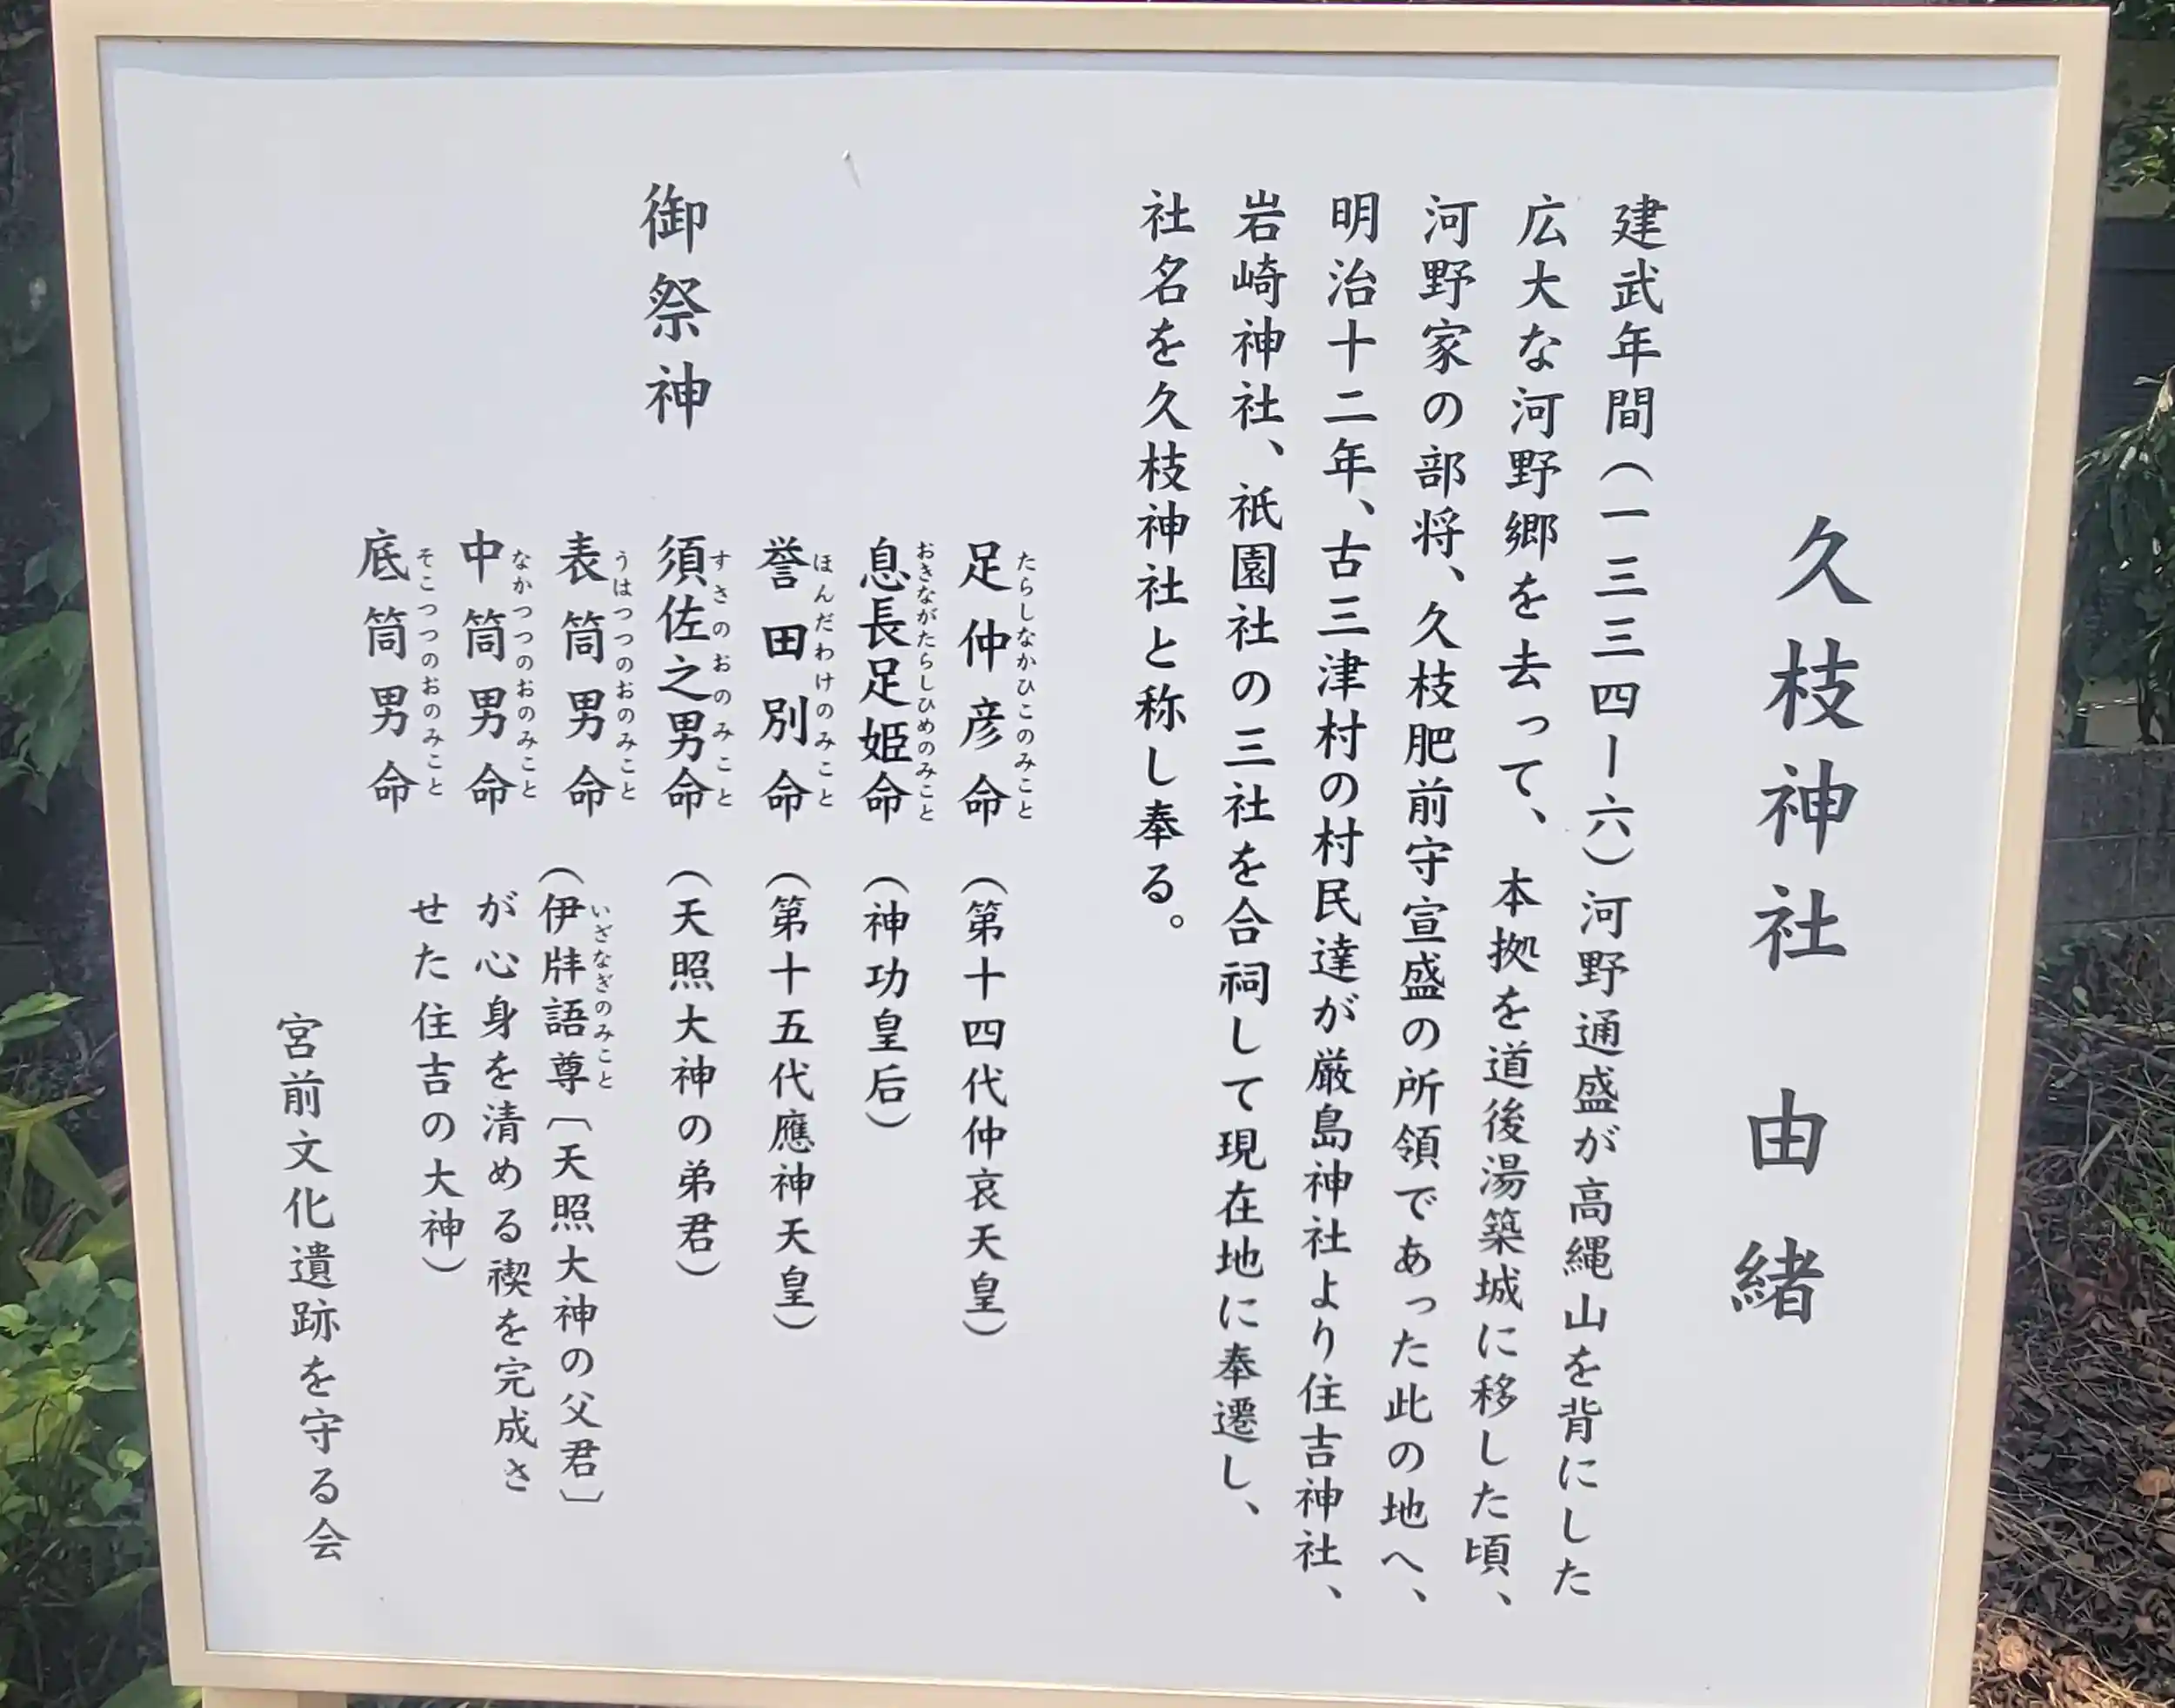 久枝神社 由緒
建武年間（一三三四ー六）河野通盛が高縄山を背にした
広大な河野郷を去って、本拠を道後湯築城に移した頃、
河野家の部将、久枝肥前守宣盛の所領であった此の地へ、
明治十二年、古三津村の村民達が厳島神社より住吉神社、
岩崎神社、祇園社の三社を合祠して現在地に奉遷し、
社名を久枝神社と称し奉る。
御祭神
足仲彦命（第十四代仲哀天皇）
たらしなかひこのみこと
息長足姫命（神功皇后）
おきながたらしひめのみこと
誉田別命（第十五代應神天皇）
ほんだわけのみこと
須佐之男命（天照大神の弟君）
すさのおのみこと
表筒男命
うはつつのおのみこと
中筒男命
なかつつのおのみこと
底筒男命
そこつつのおのみこと
（伊牂語尊〔天照大神の父君〕
いざなぎのみこと
が心身を清める禊を完成さ
せた住吉の大神）
宮前文化遺跡を守る会